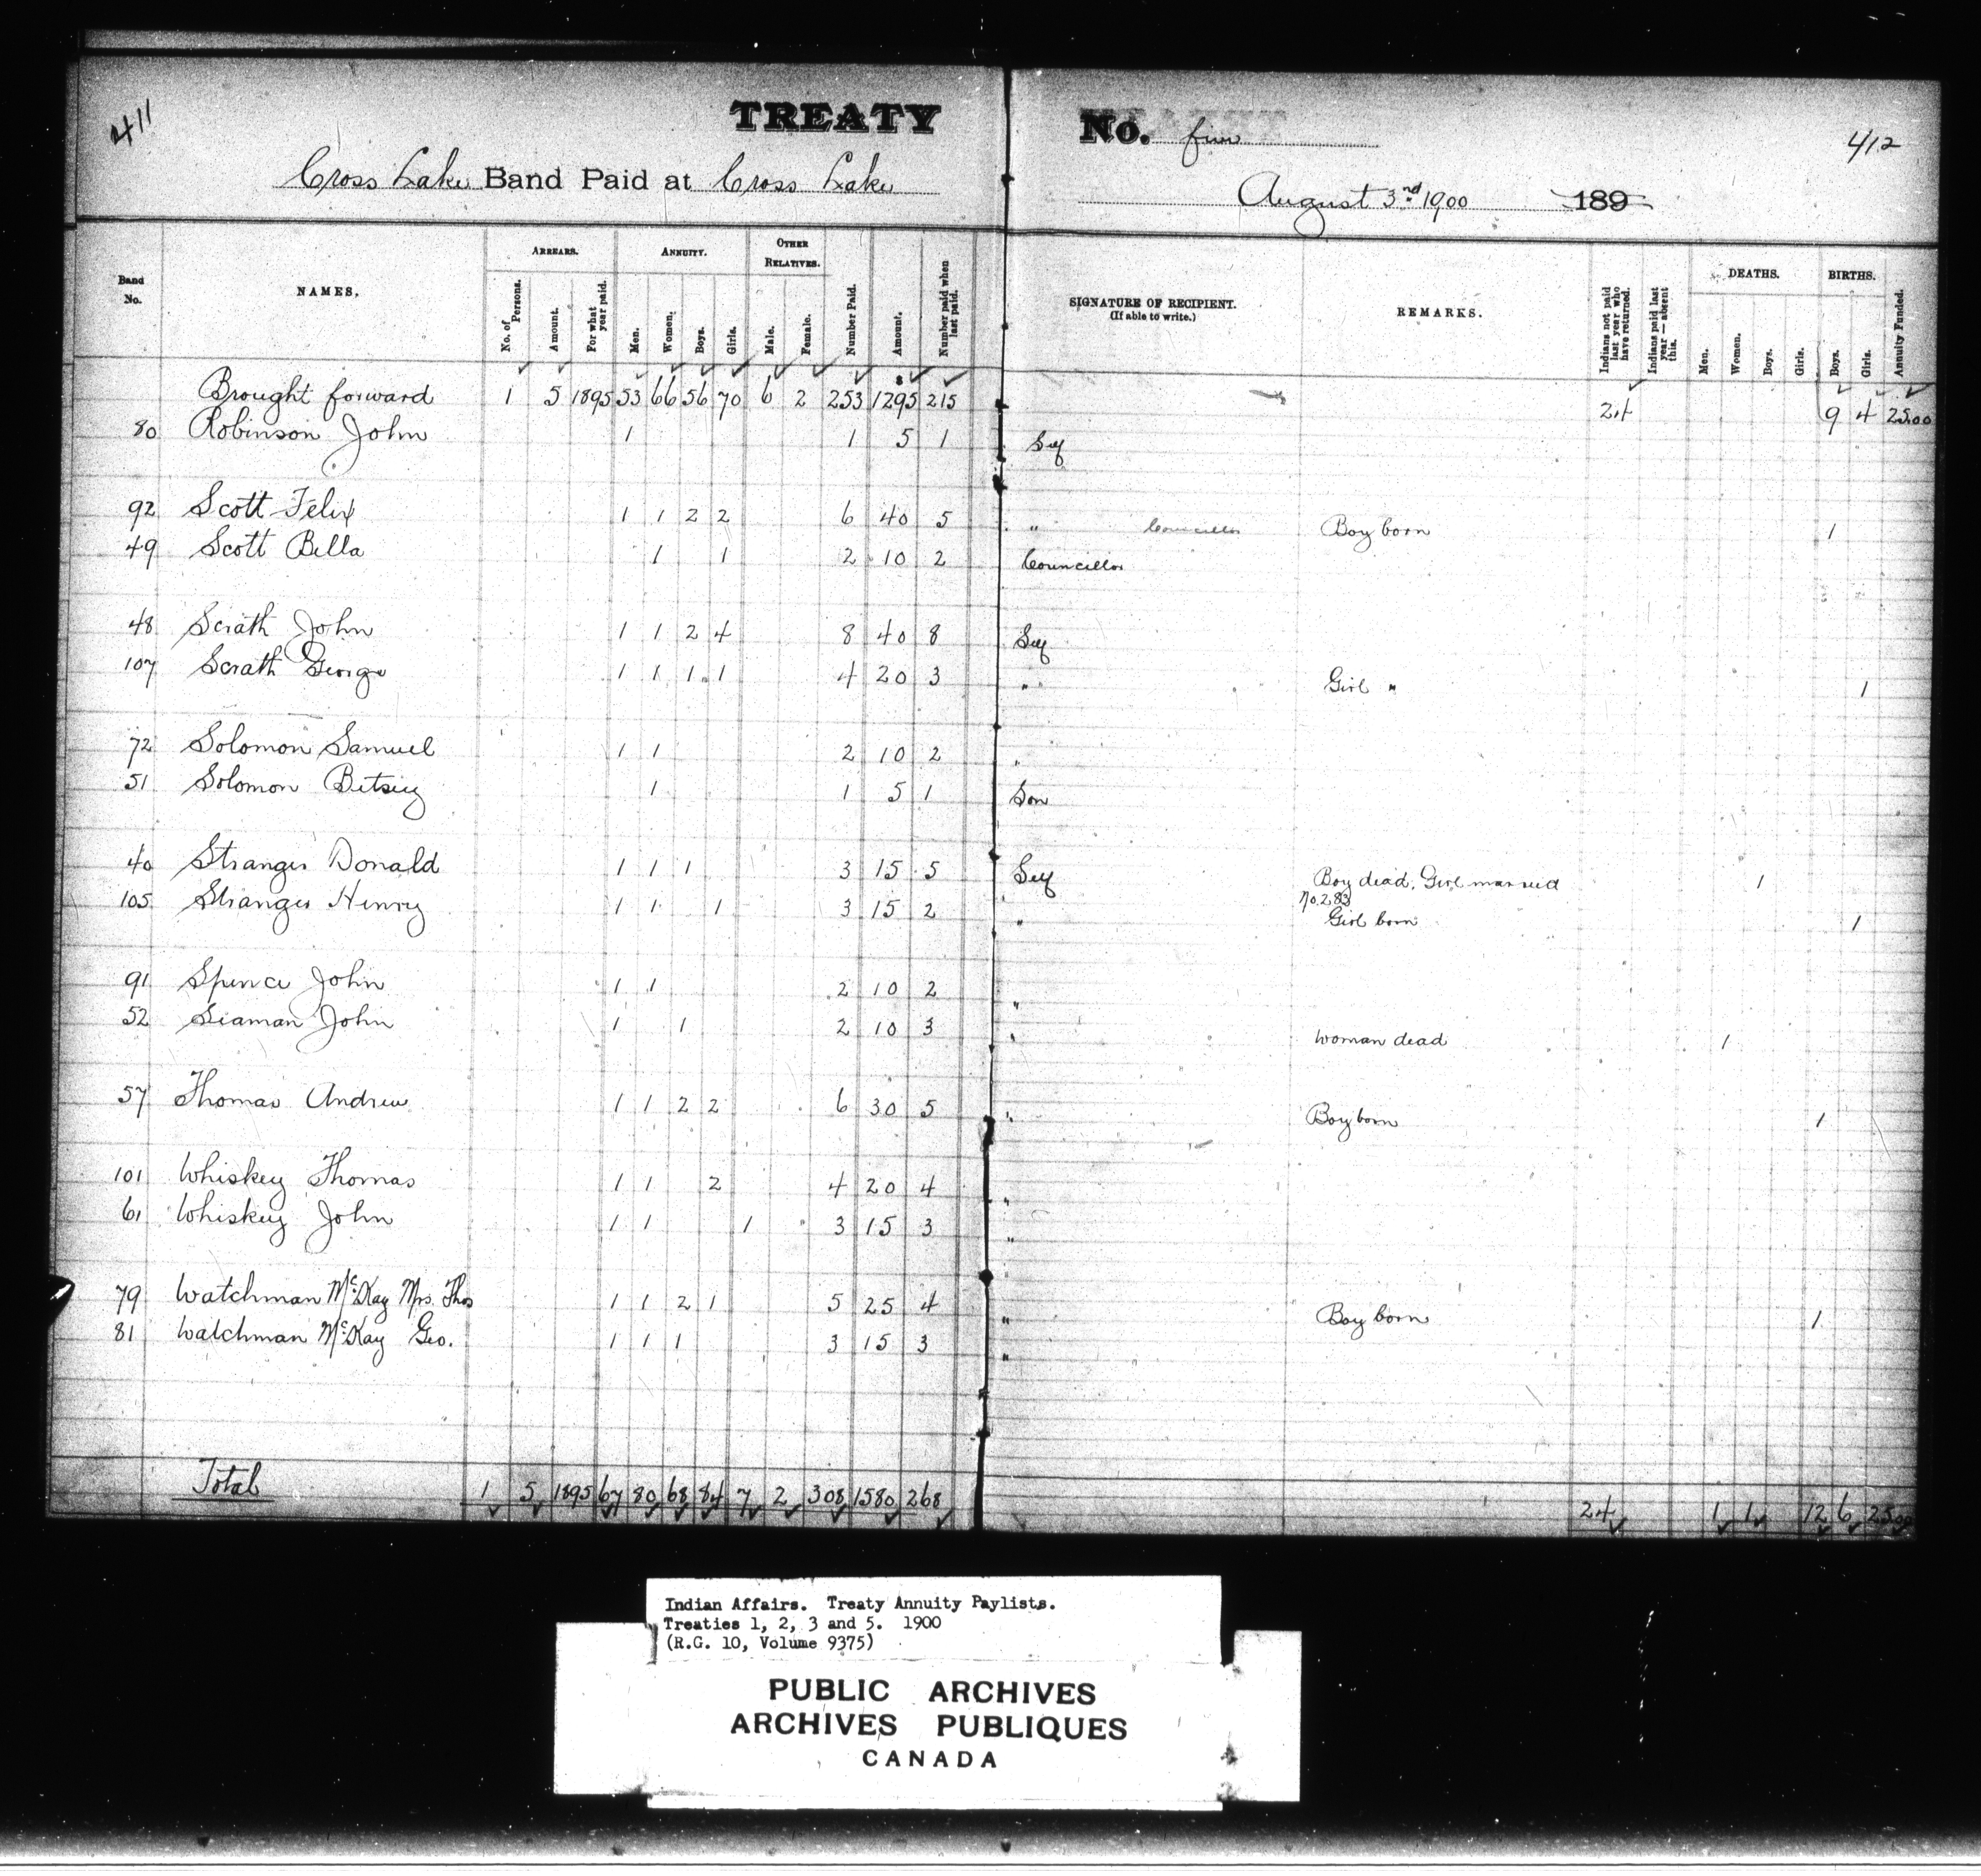 411
TREATY No. five
412
Cross Lake Band Paid at Cross Lake August 3rd 1900 189
Band No. NAMES. ARREARS. No. of Persons. Amount. For what year paid. ANNUITY. Men. Women. Boys. Girls. OTHER RELATIVES. Male. Female. Number Paid. Amount. Number paid when last paid. SIGNATURE OF RECIPIENT. (If able to write.) REMARKS. Indians not paid last year who have returned. Indians paid last year — absent this. DEATHS. Men. Women. Boys. Girls. BIRTHS. Boys. Girls. Annuity Funded.
Brought forward 1 5 1895 53 66 56 70 6 2 253 $1295 215 24 9 4 25.00
80 Robinson John 1 1 5 1 Self
92 Scott Felix 1 1 2 2 6 40 5 " Councillor Boy born 1
49 Scott Bella 1 1 2 10 2 Councillor
48 Scrath John 1 1 2 4 8 40 8 Self
107 Scrath George 1 1 1 1 4 20 3 " Girl " 1
72 Solomon Samuel 1 1 2 10 2 "
51 Solomon Betsey 1 1 5 1 Son
40 Stranger Donald 1 1 1 3 15 5 Self Boy dead. Girl married 1
No. 283
105 Stranger Henry 1 1 1 3 15 2 " Girl born 1
91 Spence John 1 1 2 10 2 "
52 Seaman John 1 1 2 10 3 " Woman dead 1
57 Thomas Andrew 1 1 2 2 6 30 5 " Boy born 1
101 Whiskey Thomas 1 1 2 4 20 4 "
61 Whiskey John 1 1 1 3 15 3 "
79 Watchman McKay Mrs. Thos 1 1 2 1 5 25 4 " Boy born 1
81 Watchman McKay Geo. 1 1 1 3 15 3 "
Total 1 5 1895 67 80 68 84 7 2 308 1580 268 24 1 1 12 6 25.00
Indian Affairs. Treaty Annuity Paylists.
Treaties 1, 2, 3 and 5. 1900
(R.G. 10, Volume 9375)
PUBLIC ARCHIVES
ARCHIVES PUBLIQUES
CANADA